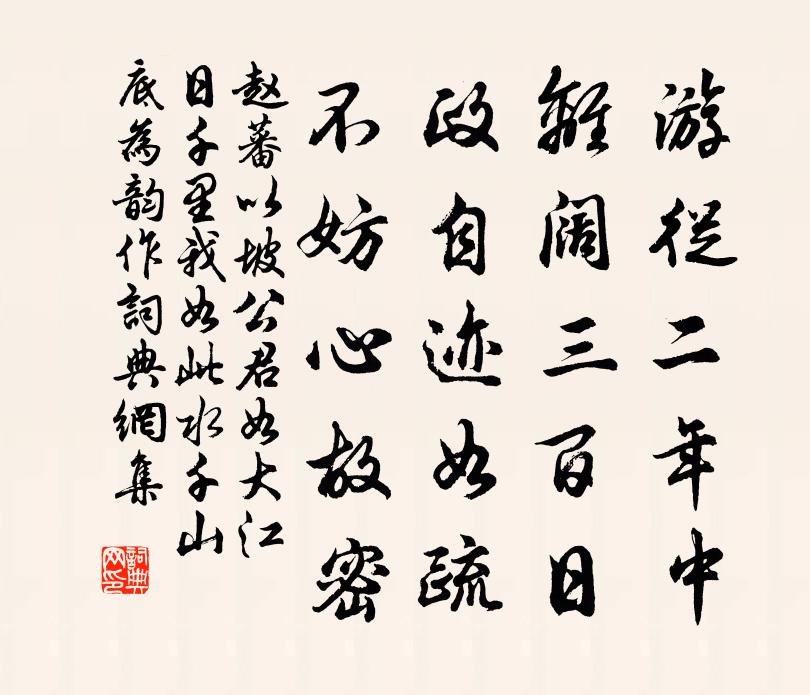 游從二年中
離阔三百日
政自迹如疏
不妨心故密
赵蕃以坡公君如大江
日千里我如此水千山
底為韵作詞典網集
詞典网印